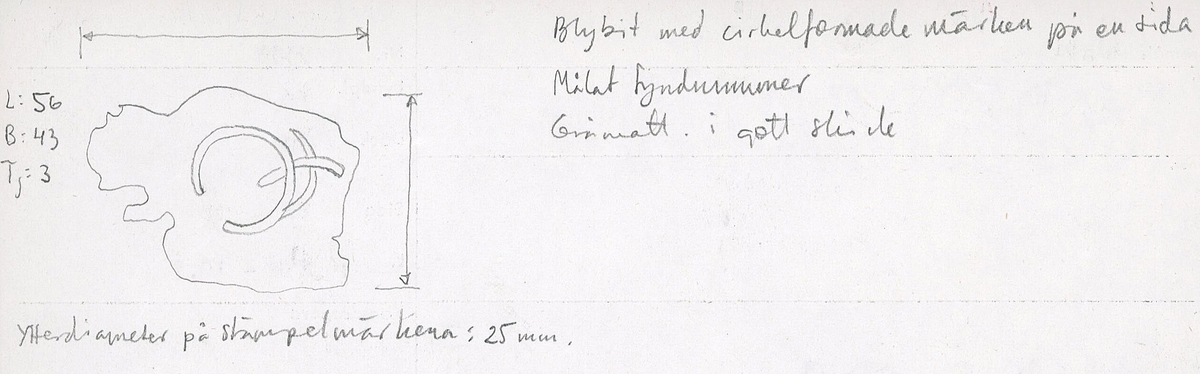 Blybit med cirkelformade märken på en sida
Målat fyndnummer
Gråmatt. i gott skick
L: 56
B: 43
Tj: 3
Ytterdiameter på stämpelmärkena: 25 mm.